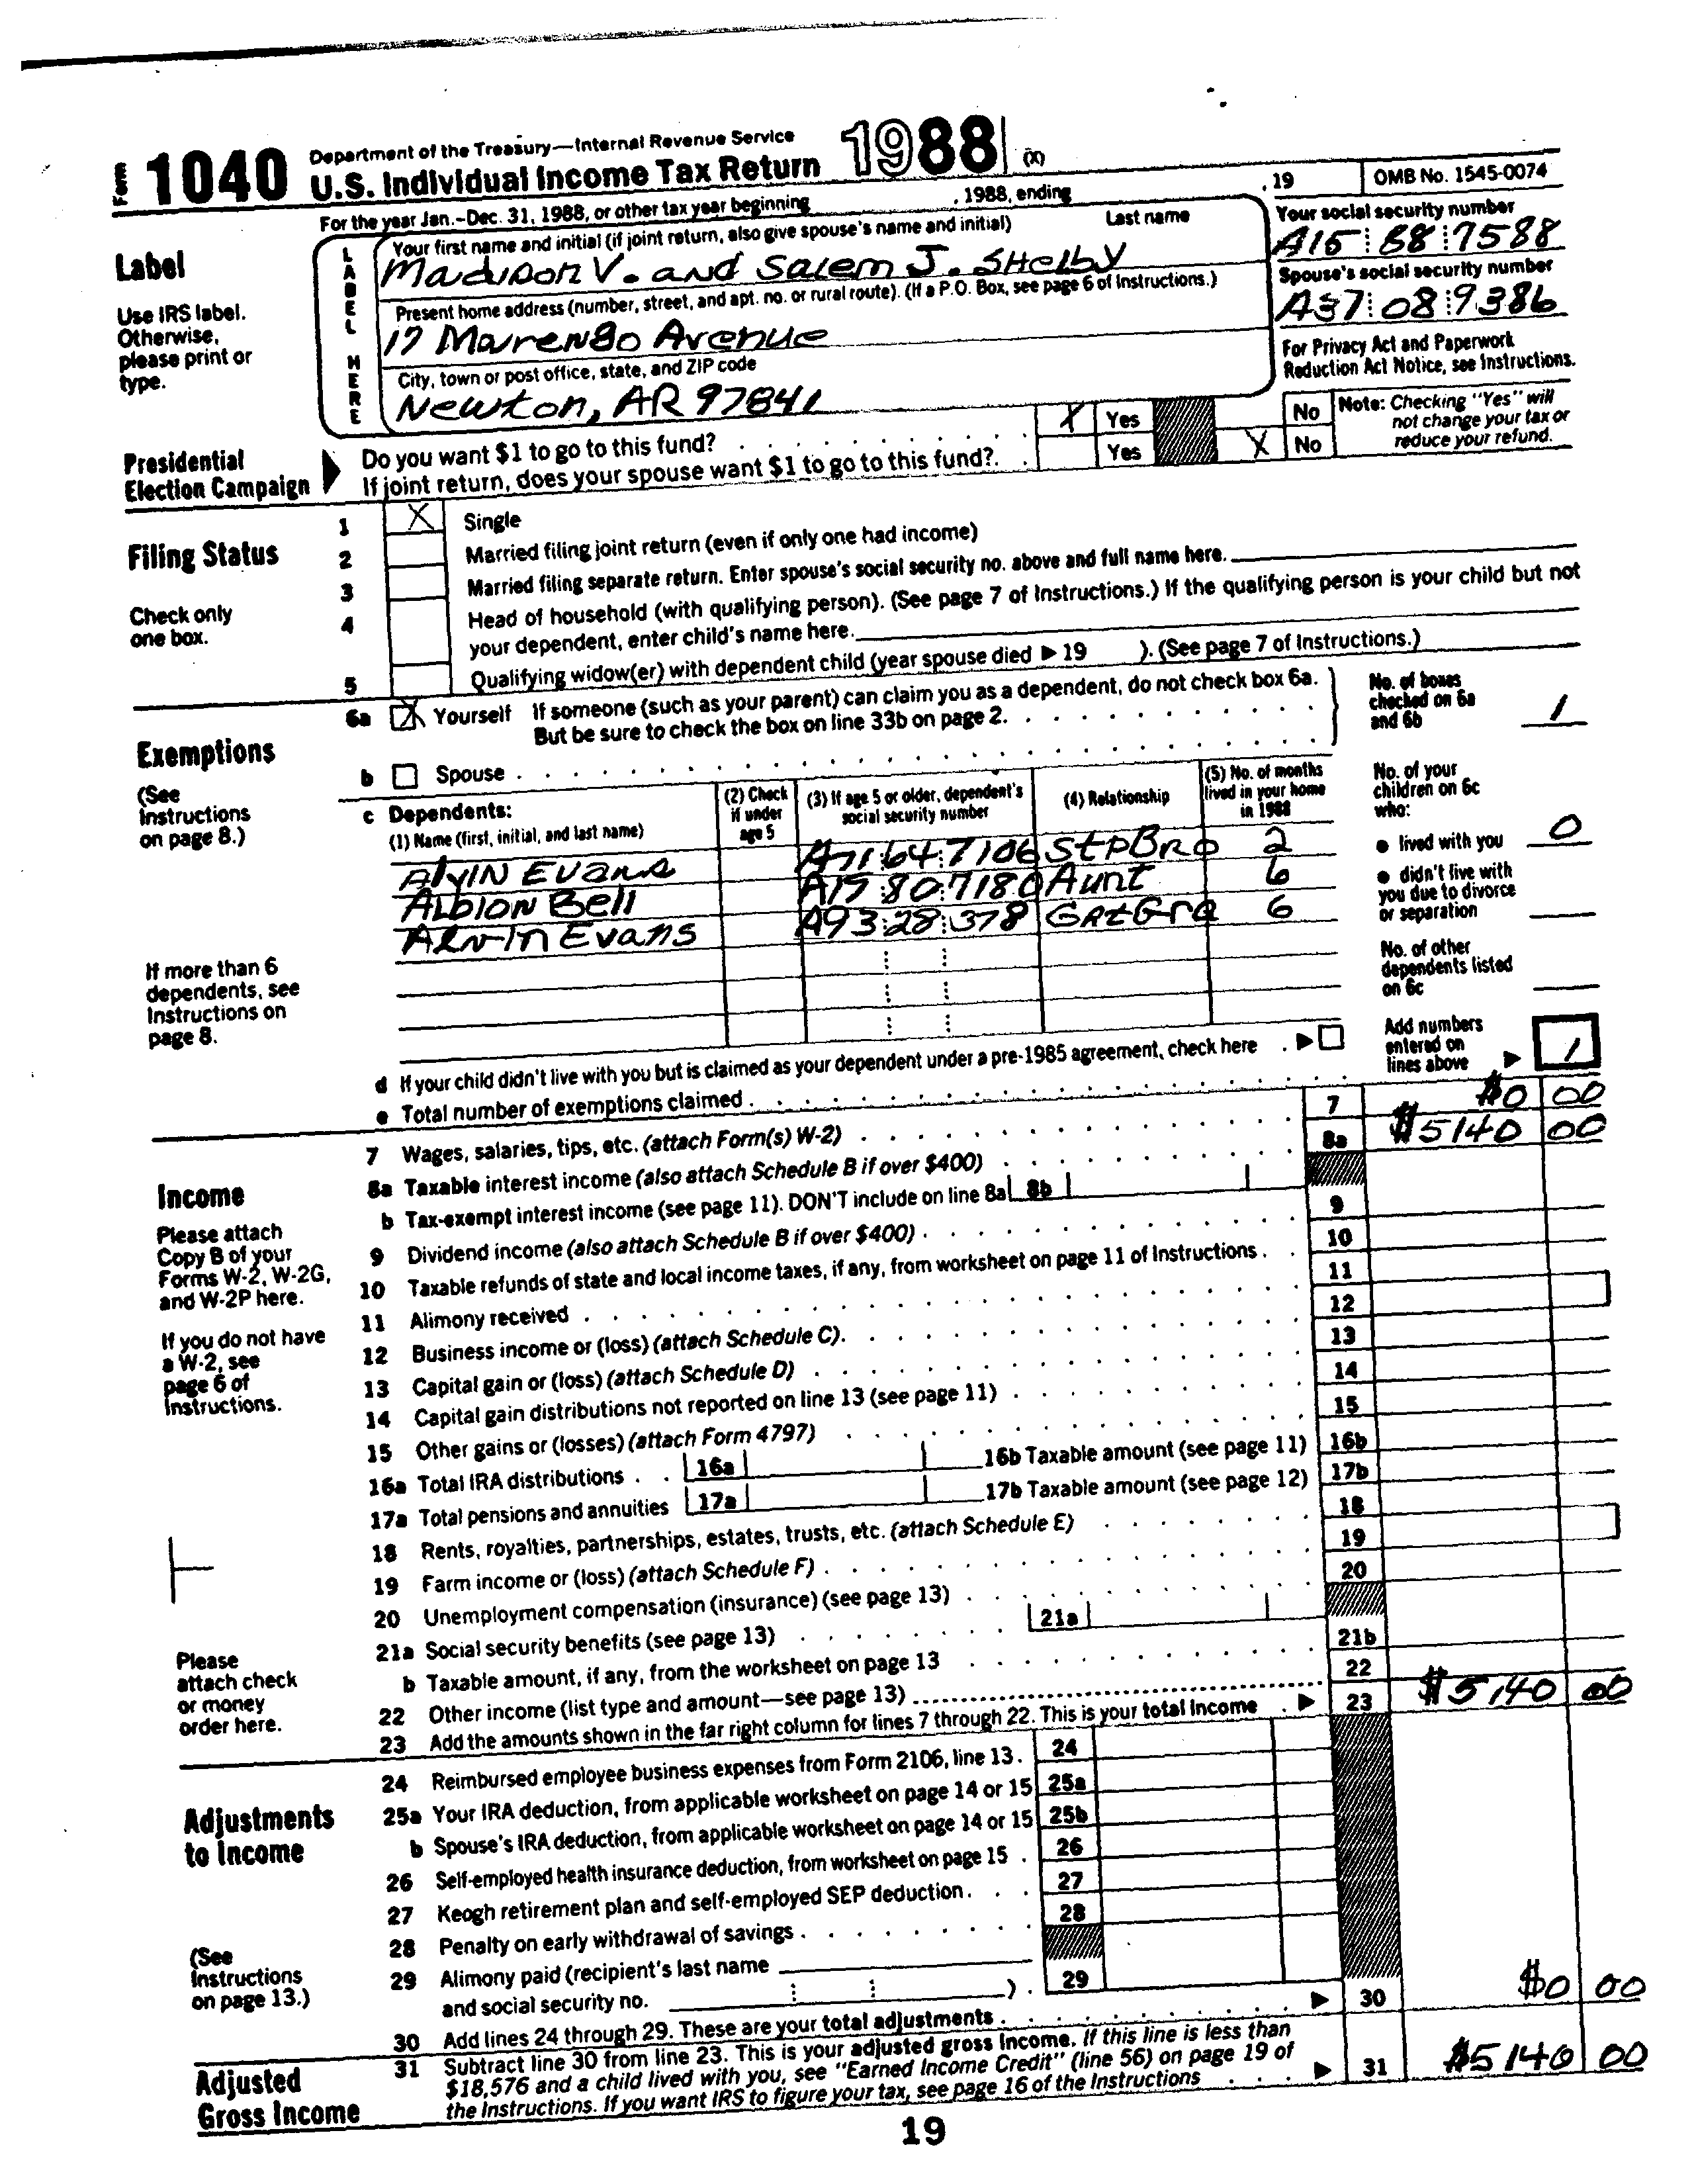 Form 1040 Department of the Treasury—Internal Revenue Service
U.S. Individual Income Tax Return 1988 (X)
For the year Jan.–Dec. 31, 1988, or other tax year beginning , 1988, ending , 19 OMB No. 1545-0074
Label
Use IRS label. Otherwise, please print or type.
LABEL HERE
Your first name and initial (if joint return, also give spouse's name and initial) Last name
Madison V. and Salem J. Shelby
Your social security number
A15 88 7588
Present home address (number, street, and apt. no. or rural route). (If a P.O. Box, see page 6 of Instructions.)
17 Marengo Avenue
Spouse's social security number
A37 08 9386
City, town or post office, state, and ZIP code
Newton, AR 97841
For Privacy Act and Paperwork Reduction Act Notice, see Instructions.
Presidential Election Campaign
Do you want $1 to go to this fund? X Yes No
If joint return, does your spouse want $1 to go to this fund? Yes X No
Note: Checking "Yes" will not change your tax or reduce your refund.
Filing Status
Check only one box.
1 X Single
2 Married filing joint return (even if only one had income)
3 Married filing separate return. Enter spouse's social security no. above and full name here.
4 Head of household (with qualifying person). (See page 7 of Instructions.) If the qualifying person is your child but not
your dependent, enter child's name here.
5 Qualifying widow(er) with dependent child (year spouse died ▶ 19 ). (See page 7 of Instructions.)
Exemptions
(See Instructions on page 8.)
6a X Yourself If someone (such as your parent) can claim you as a dependent, do not check box 6a.
But be sure to check the box on line 33b on page 2.
b Spouse
No. of boxes checked on 6a and 6b 1
c Dependents:
(1) Name (first, initial, and last name) (2) Check if under age 5 (3) If age 5 or older, dependent's social security number (4) Relationship (5) No. of months lived in your home in 1988
Alvin Evans A71 64 7106 StpBro 2
Albion Bell A17 80 7180 Aunt 6
Alvin Evans A93 28 1378 GrtGra 6
If more than 6 dependents, see Instructions on page 8.
No. of your children on 6c who:
● lived with you 0
● didn't live with you due to divorce or separation
No. of other dependents listed on 6c
d If your child didn't live with you but is claimed as your dependent under a pre-1985 agreement, check here ▶
e Total number of exemptions claimed
Add numbers entered on lines above ▶ 1
Income
Please attach Copy B of your Forms W-2, W-2G, and W-2P here.
If you do not have a W-2, see page 6 of Instructions.
Please attach check or money order here.
7 Wages, salaries, tips, etc. (attach Form(s) W-2) 7 $0 00
8a Taxable interest income (also attach Schedule B if over $400) 8a $5140 00
b Tax-exempt interest income (see page 11). DON'T include on line 8a 8b
9 Dividend income (also attach Schedule B if over $400) 9
10 Taxable refunds of state and local income taxes, if any, from worksheet on page 11 of Instructions 10
11 Alimony received 11
12 Business income or (loss) (attach Schedule C) 12
13 Capital gain or (loss) (attach Schedule D) 13
14 Capital gain distributions not reported on line 13 (see page 11) 14
15 Other gains or (losses) (attach Form 4797) 15
16a Total IRA distributions 16a 16b Taxable amount (see page 11) 16b
17a Total pensions and annuities 17a 17b Taxable amount (see page 12) 17b
18 Rents, royalties, partnerships, estates, trusts, etc. (attach Schedule E) 18
19 Farm income or (loss) (attach Schedule F) 19
20 Unemployment compensation (insurance) (see page 13) 20
21a Social security benefits (see page 13) 21a
b Taxable amount, if any, from the worksheet on page 13 21b
22 Other income (list type and amount—see page 13) 22
23 Add the amounts shown in the far right column for lines 7 through 22. This is your total income ▶ 23 $5140 00
Adjustments to Income
(See Instructions on page 13.)
24 Reimbursed employee business expenses from Form 2106, line 13 24
25a Your IRA deduction, from applicable worksheet on page 14 or 15 25a
b Spouse's IRA deduction, from applicable worksheet on page 14 or 15 25b
26 Self-employed health insurance deduction, from worksheet on page 15 26
27 Keogh retirement plan and self-employed SEP deduction 27
28 Penalty on early withdrawal of savings 28
29 Alimony paid (recipient's last name
and social security no. ) 29
30 Add lines 24 through 29. These are your total adjustments ▶ 30 $0 00
Adjusted Gross Income
31 Subtract line 30 from line 23. This is your adjusted gross income. If this line is less than
$18,576 and a child lived with you, see "Earned Income Credit" (line 56) on page 19 of
the Instructions. If you want IRS to figure your tax, see page 16 of the Instructions ▶ 31 $5140 00
19